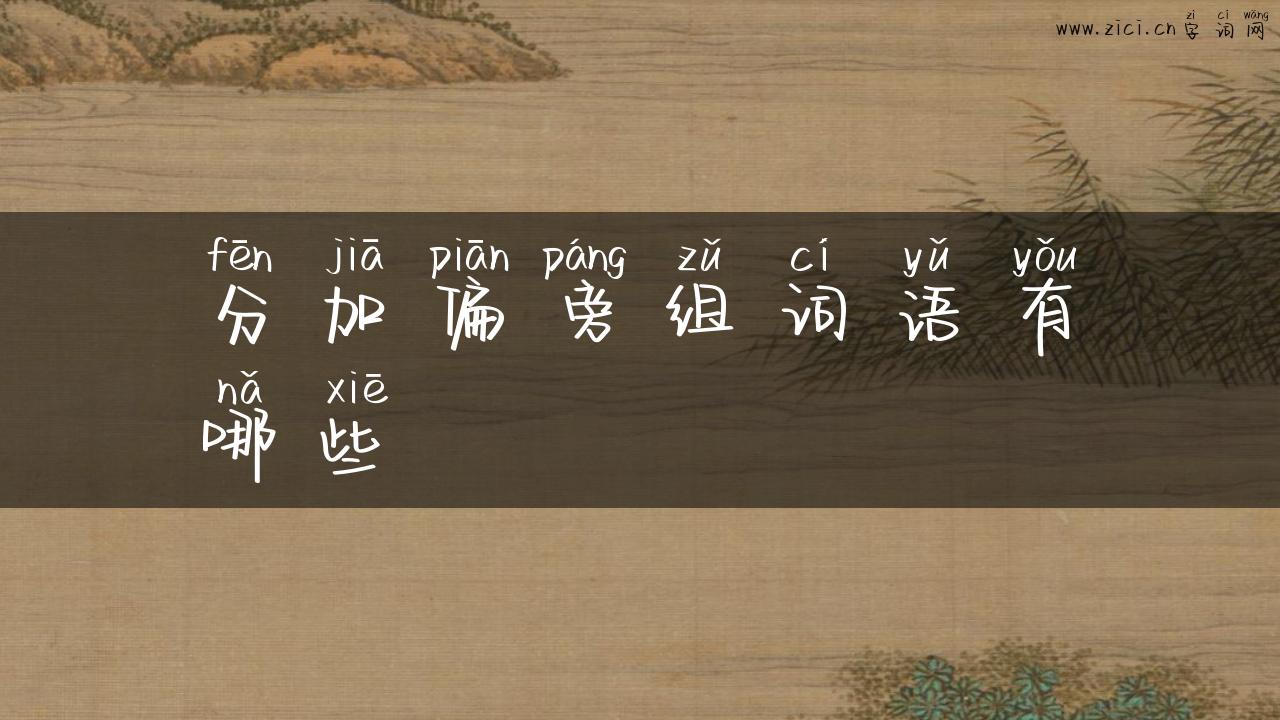 zì cí wǎng
www.zici.cn 字词网
fēn jiā piān páng zǔ cí yǔ yǒu
分加偏旁组词语有
nǎ xiē
哪些